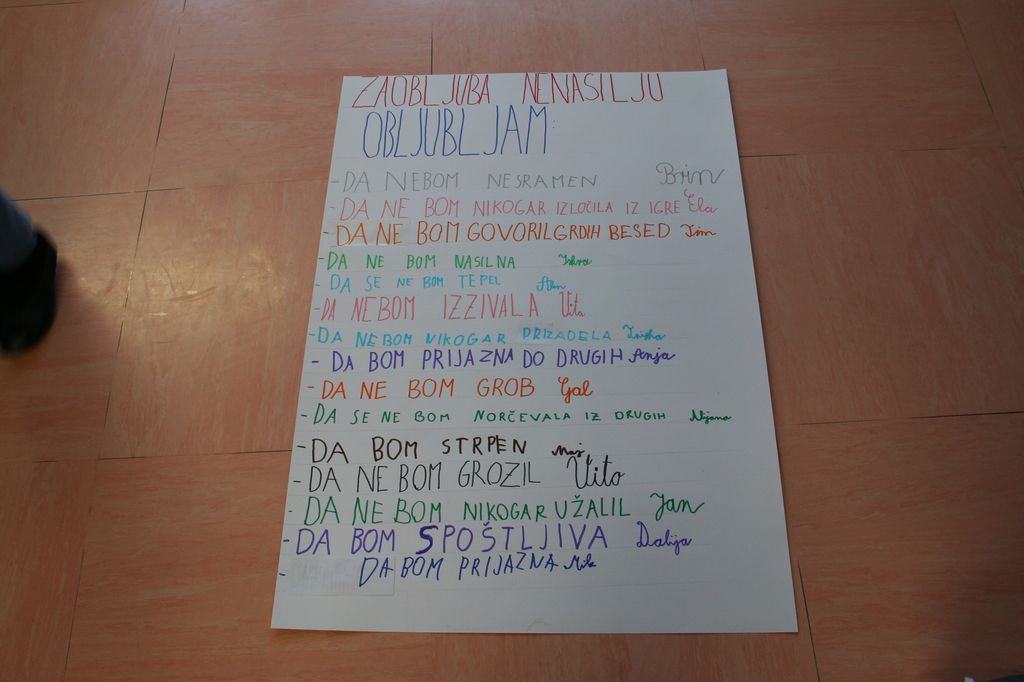 ZAOBLJUBA NENASILJU
OBLJUBLJAM:
- DA NEBOM NESRAMEN Brin
- DA NE BOM NIKOGAR IZLOČILA IZ IGRE Ela
- DA NE BOM GOVORIL GRDIH BESED Tim
- DA NE BOM NASILNA
- DA SE NE BOM TEPEL
- DA NEBOM IZZIVALA Vita
- DA NEBOM NIKOGAR PRIZADELA
- DA BOM PRIJAZNA DO DRUGIH Anja
- DA NE BOM GROB Gal
- DA SE NE BOM NORČEVALA IZ DRUGIH
- DA BOM STRPEN
- DA NE BOM GROZIL Vito
- DA NE BOM NIKOGAR UŽALIL Jan
- DA BOM SPOŠTLJIVA Dalija
- DA BOM PRIJAZNA Mila